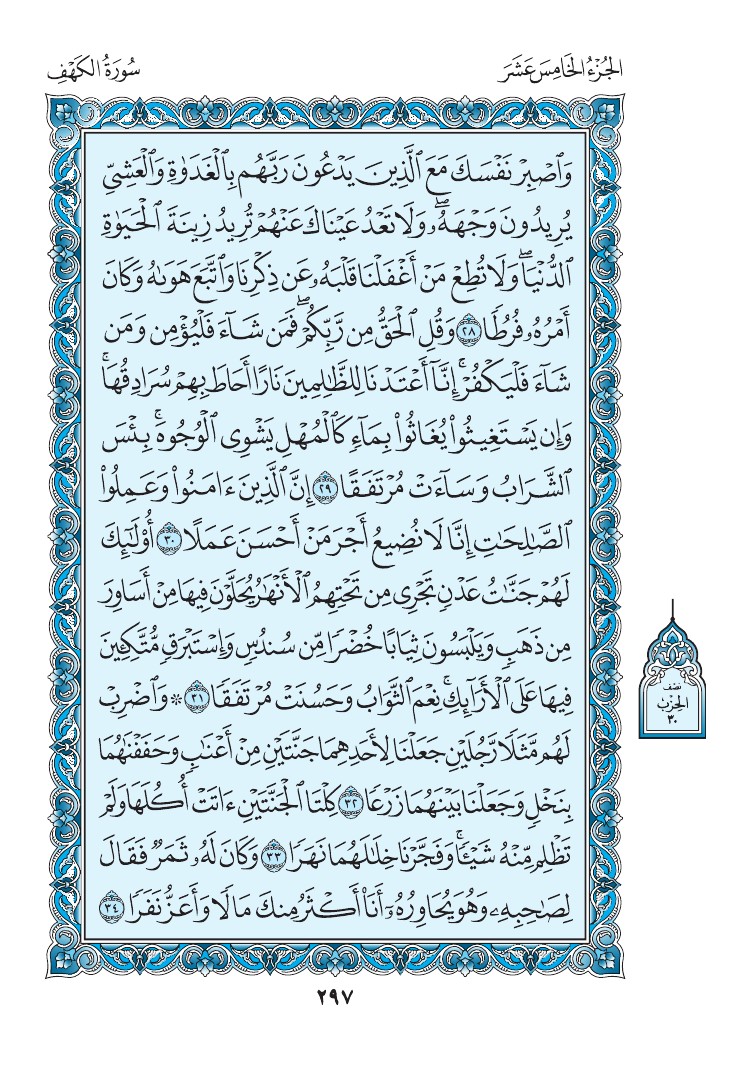 الجُزْءُ الخَامِسَ عَشَرَ
سُورَةُ الكَهْفِ
وَٱصْبِرْ نَفْسَكَ مَعَ ٱلَّذِينَ يَدْعُونَ رَبَّهُم بِٱلْغَدَوٰةِ وَٱلْعَشِىِّ
يُرِيدُونَ وَجْهَهُۥۖ وَلَا تَعْدُ عَيْنَاكَ عَنْهُمْ تُرِيدُ زِينَةَ ٱلْحَيَوٰةِ
ٱلدُّنْيَاۖ وَلَا تُطِعْ مَنْ أَغْفَلْنَا قَلْبَهُۥ عَن ذِكْرِنَا وَٱتَّبَعَ هَوَىٰهُ وَكَانَ
أَمْرُهُۥ فُرُطًا ٢٨ وَقُلِ ٱلْحَقُّ مِن رَّبِّكُمْۖ فَمَن شَآءَ فَلْيُؤْمِن وَمَن
شَآءَ فَلْيَكْفُرْۚ إِنَّآ أَعْتَدْنَا لِلظَّٰلِمِينَ نَارًا أَحَاطَ بِهِمْ سُرَادِقُهَاۚ
وَإِن يَسْتَغِيثُوا۟ يُغَاثُوا۟ بِمَآءٍ كَٱلْمُهْلِ يَشْوِى ٱلْوُجُوهَۚ بِئْسَ
ٱلشَّرَابُ وَسَآءَتْ مُرْتَفَقًا ٢٩ إِنَّ ٱلَّذِينَ ءَامَنُوا۟ وَعَمِلُوا۟
ٱلصَّٰلِحَٰتِ إِنَّا لَا نُضِيعُ أَجْرَ مَنْ أَحْسَنَ عَمَلًا ٣٠ أُو۟لَٰٓئِكَ
لَهُمْ جَنَّٰتُ عَدْنٍ تَجْرِى مِن تَحْتِهِمُ ٱلْأَنْهَٰرُ يُحَلَّوْنَ فِيهَا مِنْ أَسَاوِرَ
مِن ذَهَبٍ وَيَلْبَسُونَ ثِيَابًا خُضْرًا مِّن سُندُسٍ وَإِسْتَبْرَقٍ مُّتَّكِـِٔينَ
فِيهَا عَلَى ٱلْأَرَآئِكِۚ نِعْمَ ٱلثَّوَابُ وَحَسُنَتْ مُرْتَفَقًا ٣١ ۞ وَٱضْرِبْ
لَهُم مَّثَلًا رَّجُلَيْنِ جَعَلْنَا لِأَحَدِهِمَا جَنَّتَيْنِ مِنْ أَعْنَٰبٍ وَحَفَفْنَٰهُمَا
بِنَخْلٍ وَجَعَلْنَا بَيْنَهُمَا زَرْعًا ٣٢ كِلْتَا ٱلْجَنَّتَيْنِ ءَاتَتْ أُكُلَهَا وَلَمْ
تَظْلِم مِّنْهُ شَيْـًٔاۚ وَفَجَّرْنَا خِلَٰلَهُمَا نَهَرًا ٣٣ وَكَانَ لَهُۥ ثَمَرٌ فَقَالَ
لِصَٰحِبِهِۦ وَهُوَ يُحَاوِرُهُۥٓ أَنَا۠ أَكْثَرُ مِنكَ مَالًا وَأَعَزُّ نَفَرًا ٣٤
نصف
الحزب
٣٠
٢٩٧